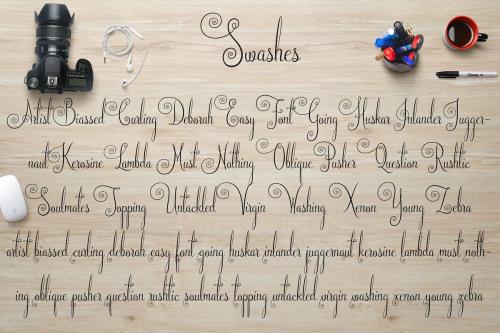 Swashes
Artist Biassed Curling Deborah Easy Font Going Huskar Inlander Jugger-
naut Kerosine Lambda Must Nothing Oblique Pusher Question Rushtic
Soulmates Topping Untackled Virgin Washing Xenon Young Zebra
artist biassed curling deborah easy font going huskar inlander juggernaut kerosine lambda must noth-
ing oblique pusher question rushtic soulmates topping untackled virgin washing xenon young zebra